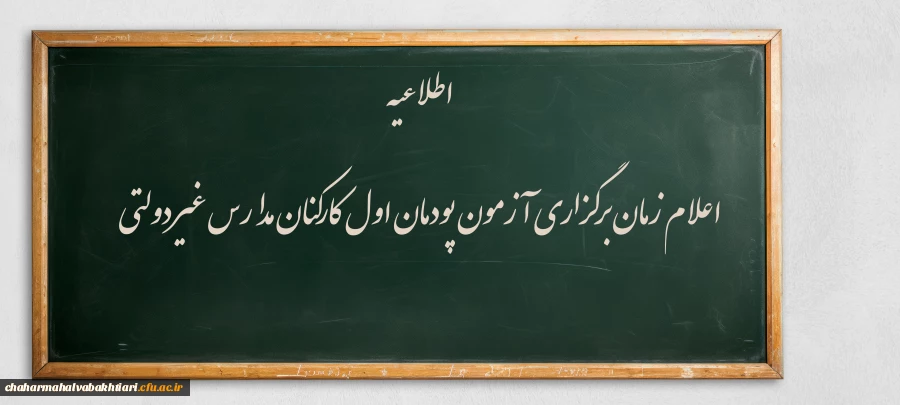 اطلاعیه
اعلام زمان برگزاری آزمون پودمان اول کارکنان مدارس غیردولتی
chaharmahalvabakhtiari.cfu.ac.ir